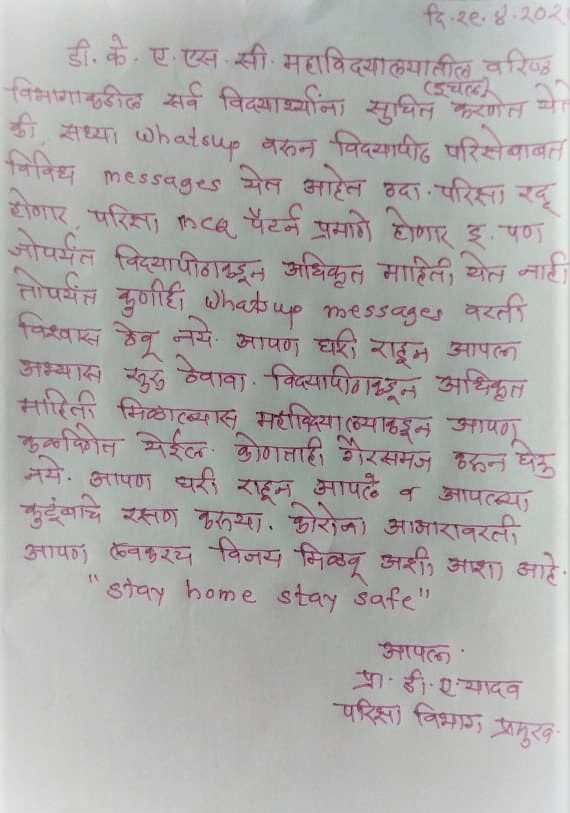 दि. २९. ४. २०२
डी. के. ए. एस. सी. महाविदयालयातील वरिष्ठ
(इचल)
विभागाकडील सर्व विदयार्थ्यांना सुचित करणेत येते
की, सध्या whatsup वरून विदयापीठ परिक्षेबाबत
विविध messages येत आहेत उदा. परिक्षा रद्द
होणार, परिक्षा MCQ पॅटर्न प्रमाणे होणार इ. पण
जोपर्यंत विदयापीठाकडून अधिकृत माहिती येत नाही
तोपर्यंत कुणीही whatsup messages वरती
विश्वास ठेवू नये. आपण घरी राहून आपला
अभ्यास सुरु ठेवावा. विदयापीठाकडून अधिकृत
माहिती मिळाल्यास महाविदयालयाकडून आपणा
कळविणेत येईल. कोणताही गैरसमज करून घेऊ
नये. आपण घरी राहून आपले व आपल्या
कुटूंबाचे रक्षण करूया. कोरोना आजारावरती
आपण लवकरच विजय मिळवू अशी आशा आहे.
"stay home stay safe"
आपला.
प्रा. डी. ए. यादव
परिक्षा विभाग प्रमुख.